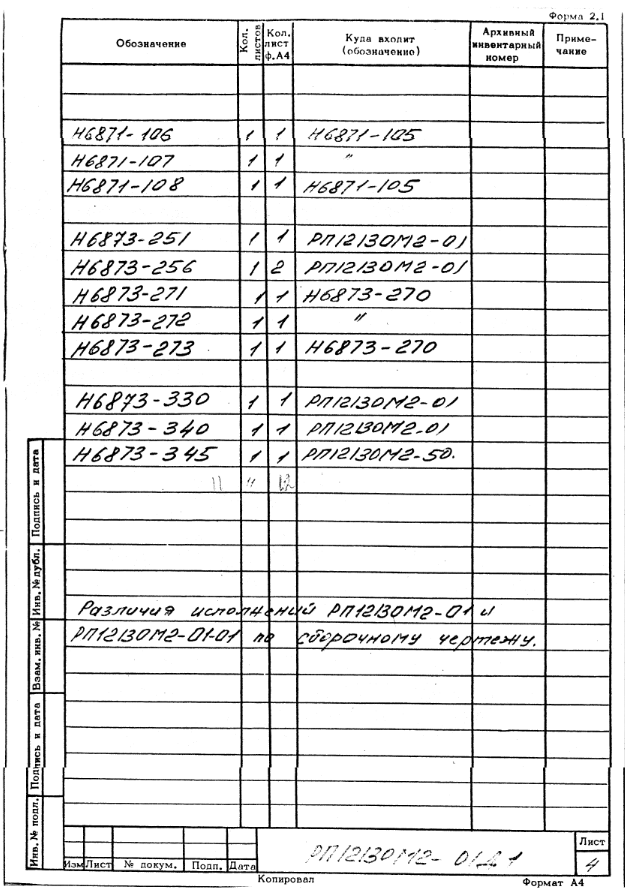 Форма 2.1
Обозначение Кол. листов Кол. лист ф.А4 Куда входит (обозначение) Архивный инвентарный номер Примечание
Н6871-106 1 1 Н6871-105
Н6871-107 1 1 "
Н6871-108 1 1 Н6871-105
Н6873-251 1 1 РП12130М2-01
Н6873-256 1 2 РП12130М2-01
Н6873-271 1 1 Н6873-270
Н6873-272 1 1 "
Н6873-273 1 1 Н6873-270
Н6873-330 1 1 РП12130М2-01
Н6873-340 1 1 РП12130М2-01
Н6873-345 1 1 РП12130М2-50.
11 " 12
Различия исполнений РП12130М2-01 и
РП12130М2-01-01 по сборочному чертежу.
Подпись и дата
Инв. № дубл.
Взам. инв. №
Подпись и дата
Инв. № подл.
Изм Лист № докум. Подп. Дата
РП12130М2-01Д1
Лист
4
Копировал
Формат А4